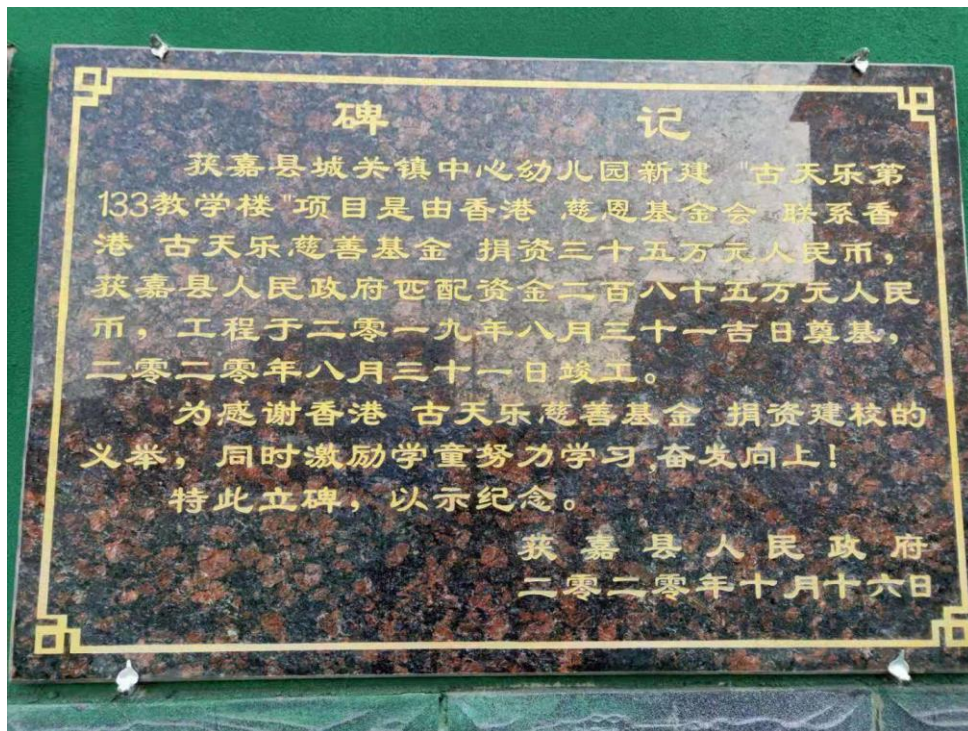 碑 记
获嘉县城关镇中心幼儿园新建 "古天乐第
133教学楼"项目是由香港 慈恩基金会 联系香
港 古天乐慈善基金 捐资三十五万元人民币，
获嘉县人民政府匹配资金二百八十五万元人民
币，工程于二零一九年八月三十一吉日奠基，
二零二零年八月三十一日竣工。
为感谢香港 古天乐慈善基金 捐资建校的
义举，同时激励学童努力学习,奋发向上！
特此立碑，以示纪念。
获嘉县人民政府
二零二零年十月十六日